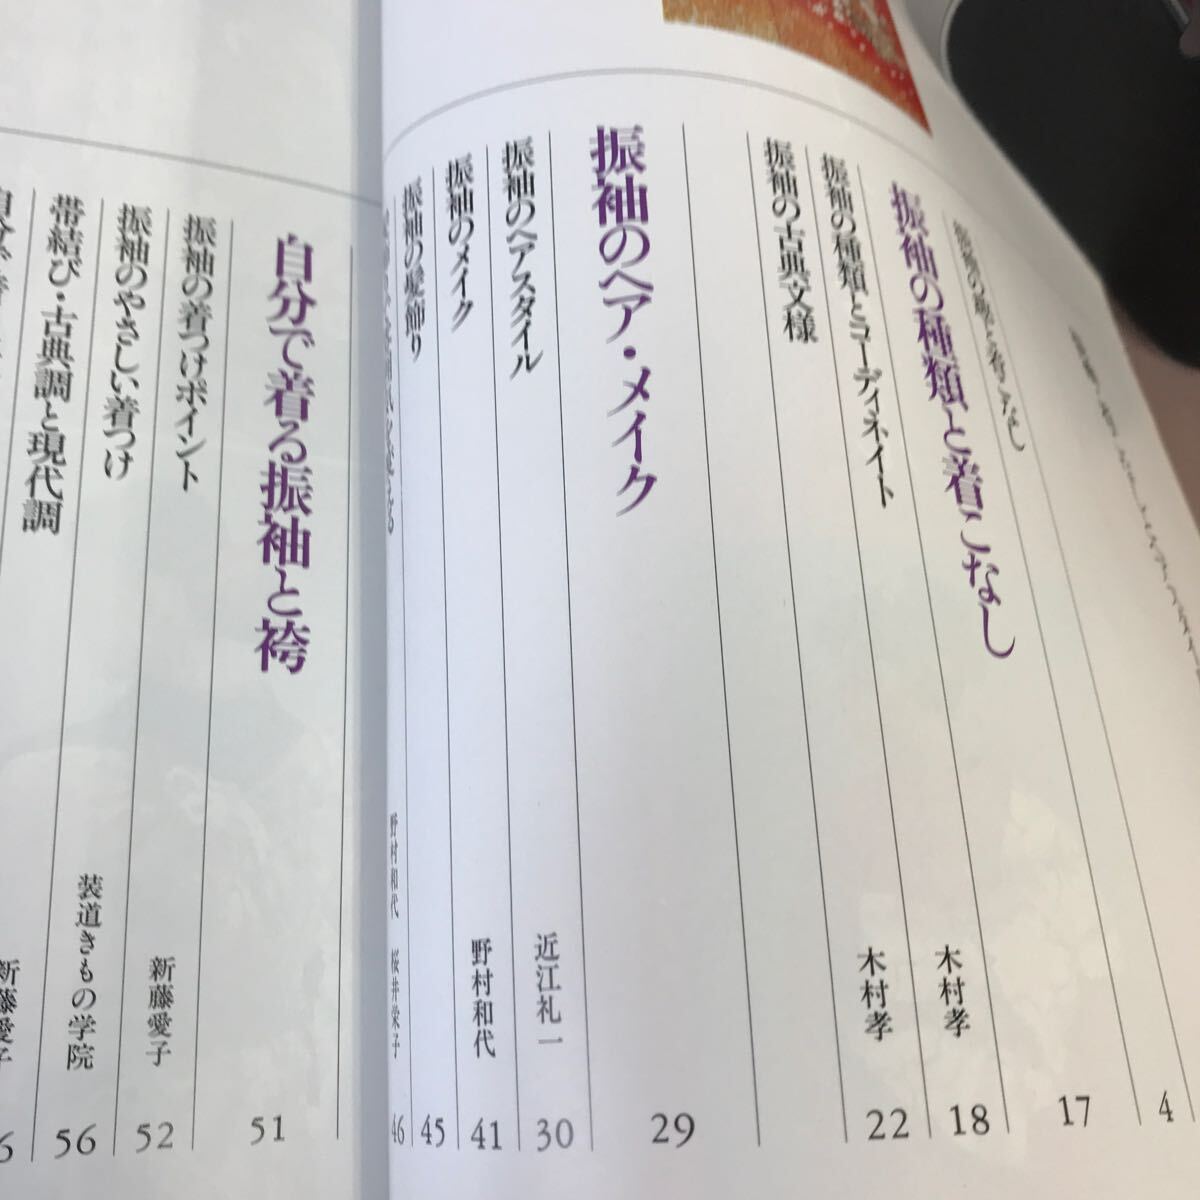 4
振袖の種類と着こなし 17
振袖の種類とコーディネイト 木村孝 18
振袖の古典文様 木村孝 22
振袖のヘア・メイク 29
振袖のヘアスタイル 近江礼一 30
振袖のメイク 野村和代 41
振袖の髪飾り 45
野村和代 桜井栄子 46
自分で着る振袖と袴 51
振袖の着つけポイント 52
振袖のやさしい着つけ 新藤愛子
帯結び・古典調と現代調 装道きもの学院 56
新藤愛子